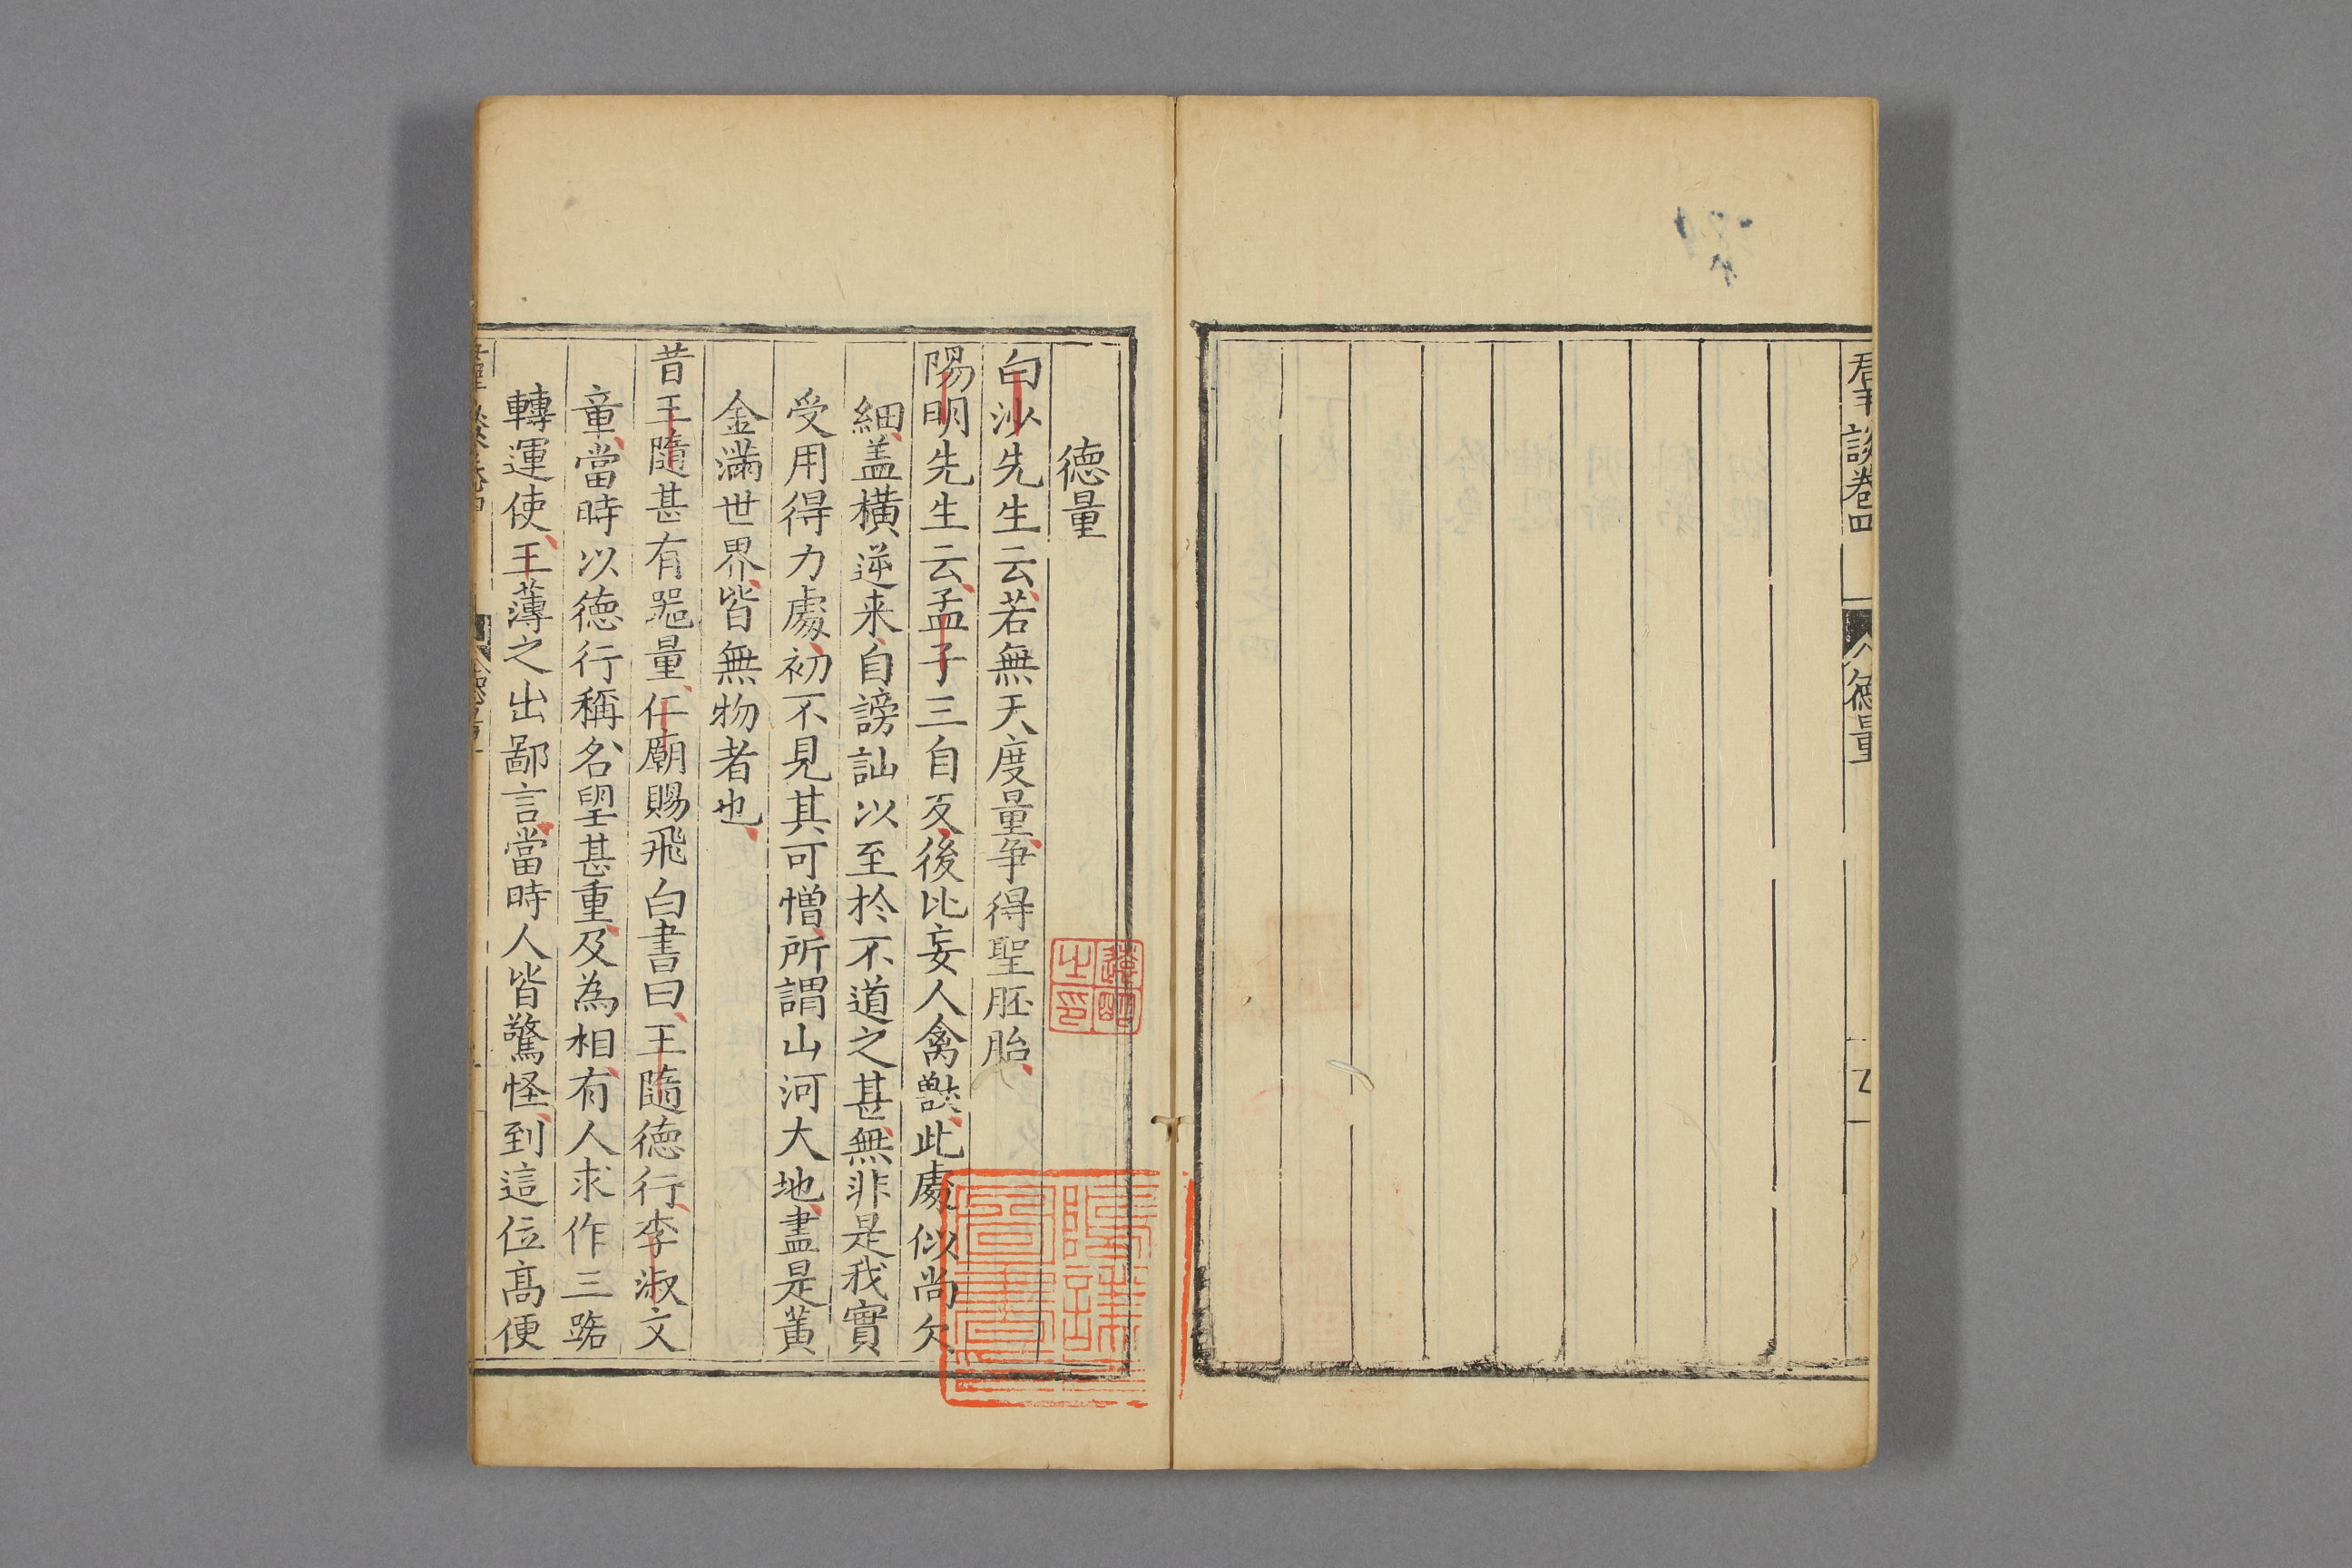 羣談卷四
德量
德量
白沙先生云若無天度量爭得聖胚胎
陽明先生云孟子三自反後比妄人禽獸此處似尚欠
細盖橫逆来自謗訕以至於不道之甚無非是我實
受用得力處初不見其可憎所謂山河大地盡是黃
金滿世界皆無物者也
昔王隨甚有噐量仁廟賜飛白書曰王隨德行李淑文
章當時以德行稱名望甚重及為相有人求作三路
轉運使王薄之出鄙言當時人皆驚怪到這位高便